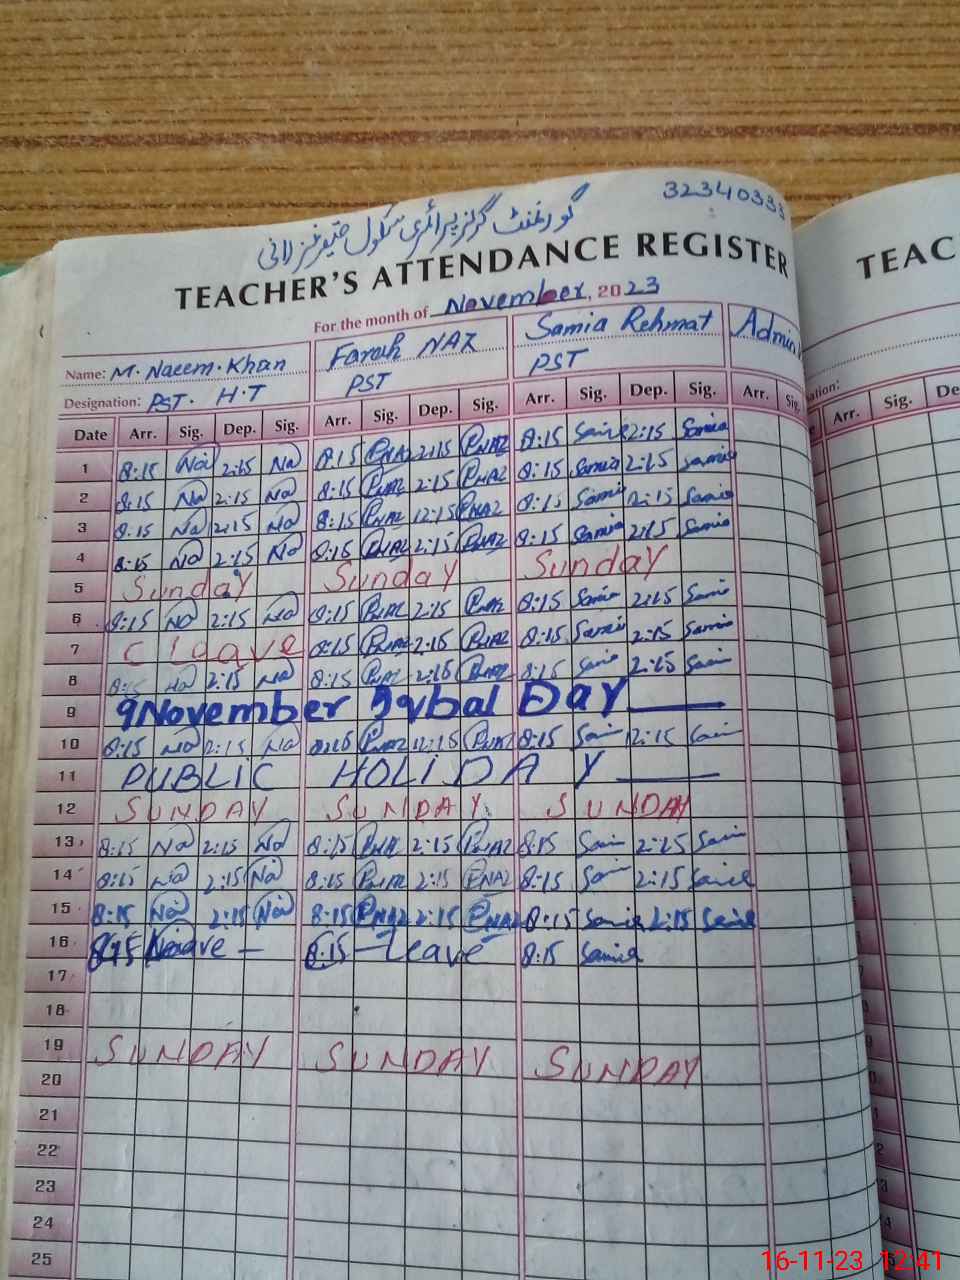 32340333
گورنمنٹ گرلز پرائمری سکول
TEACHER'S ATTENDANCE REGISTER TEAC
For the month of November, 2023
Name: M. Naeem. Khan Farah NAZ Samia Rehmat Admin
Designation: PST. H.T PST PST ation:
Date Arr. Sig. Dep. Sig. Arr. Sig. Dep. Sig. Arr. Sig. Dep. Sig. Arr. Sig. Arr. Sig. De
1 8:15 Na 2:15 Na 8:15 PNAZ 2:15 PNAZ 8:15 Samia 2:15 Samia
2 8:15 Na 2:15 Na 8:15 PNAZ 2:15 PNAZ 8:15 Samia 2:15 Samia
3 8:15 Na 2:15 Na 8:15 PNAZ 12:15 PNAZ 8:15 Samia 12:15 Samia
4 8:15 Na 2:15 Na 8:15 PNAZ 2:15 PNAZ 8:15 Samia 2:15 Samia
5 Sunday Sunday Sunday
6 8:15 Na 2:15 Na 8:15 PNAZ 2:15 PNAZ 8:15 Samia 2:15 Samia
7 C leave 8:15 PNAZ 2:15 PNAZ 8:15 Samia 2:15 Samia
8 8:15 Na 2:15 Na 8:15 PNAZ 2:15 PNAZ 8:15 Samia 2:15 Samia
9 9 November Iqbal Day
10 8:15 Na 2:15 Na 8:15 PNAZ 12:15 PNAZ 8:15 Samia 12:15 Samia
11 PUBLIC HOLIDAY
12 SUNDAY SUNDAY SUNDAY
13 8:15 Na 2:15 Na 8:15 PNAZ 2:15 PNAZ 8:15 Samia 2:15 Samia
14 8:15 Na 2:15 Na 8:15 PNAZ 2:15 PNAZ 8:15 Samia 2:15 Samia
15 8:15 Na 2:15 Na 8:15 PNAZ 2:15 PNAZ 8:15 Samia 2:15 Samia
16 8:15 Leave 8:15 Leave 8:15 Samia
17
18
19 SUNDAY SUNDAY SUNDAY
20
21
22
23
24
25
16-11-23 12:41